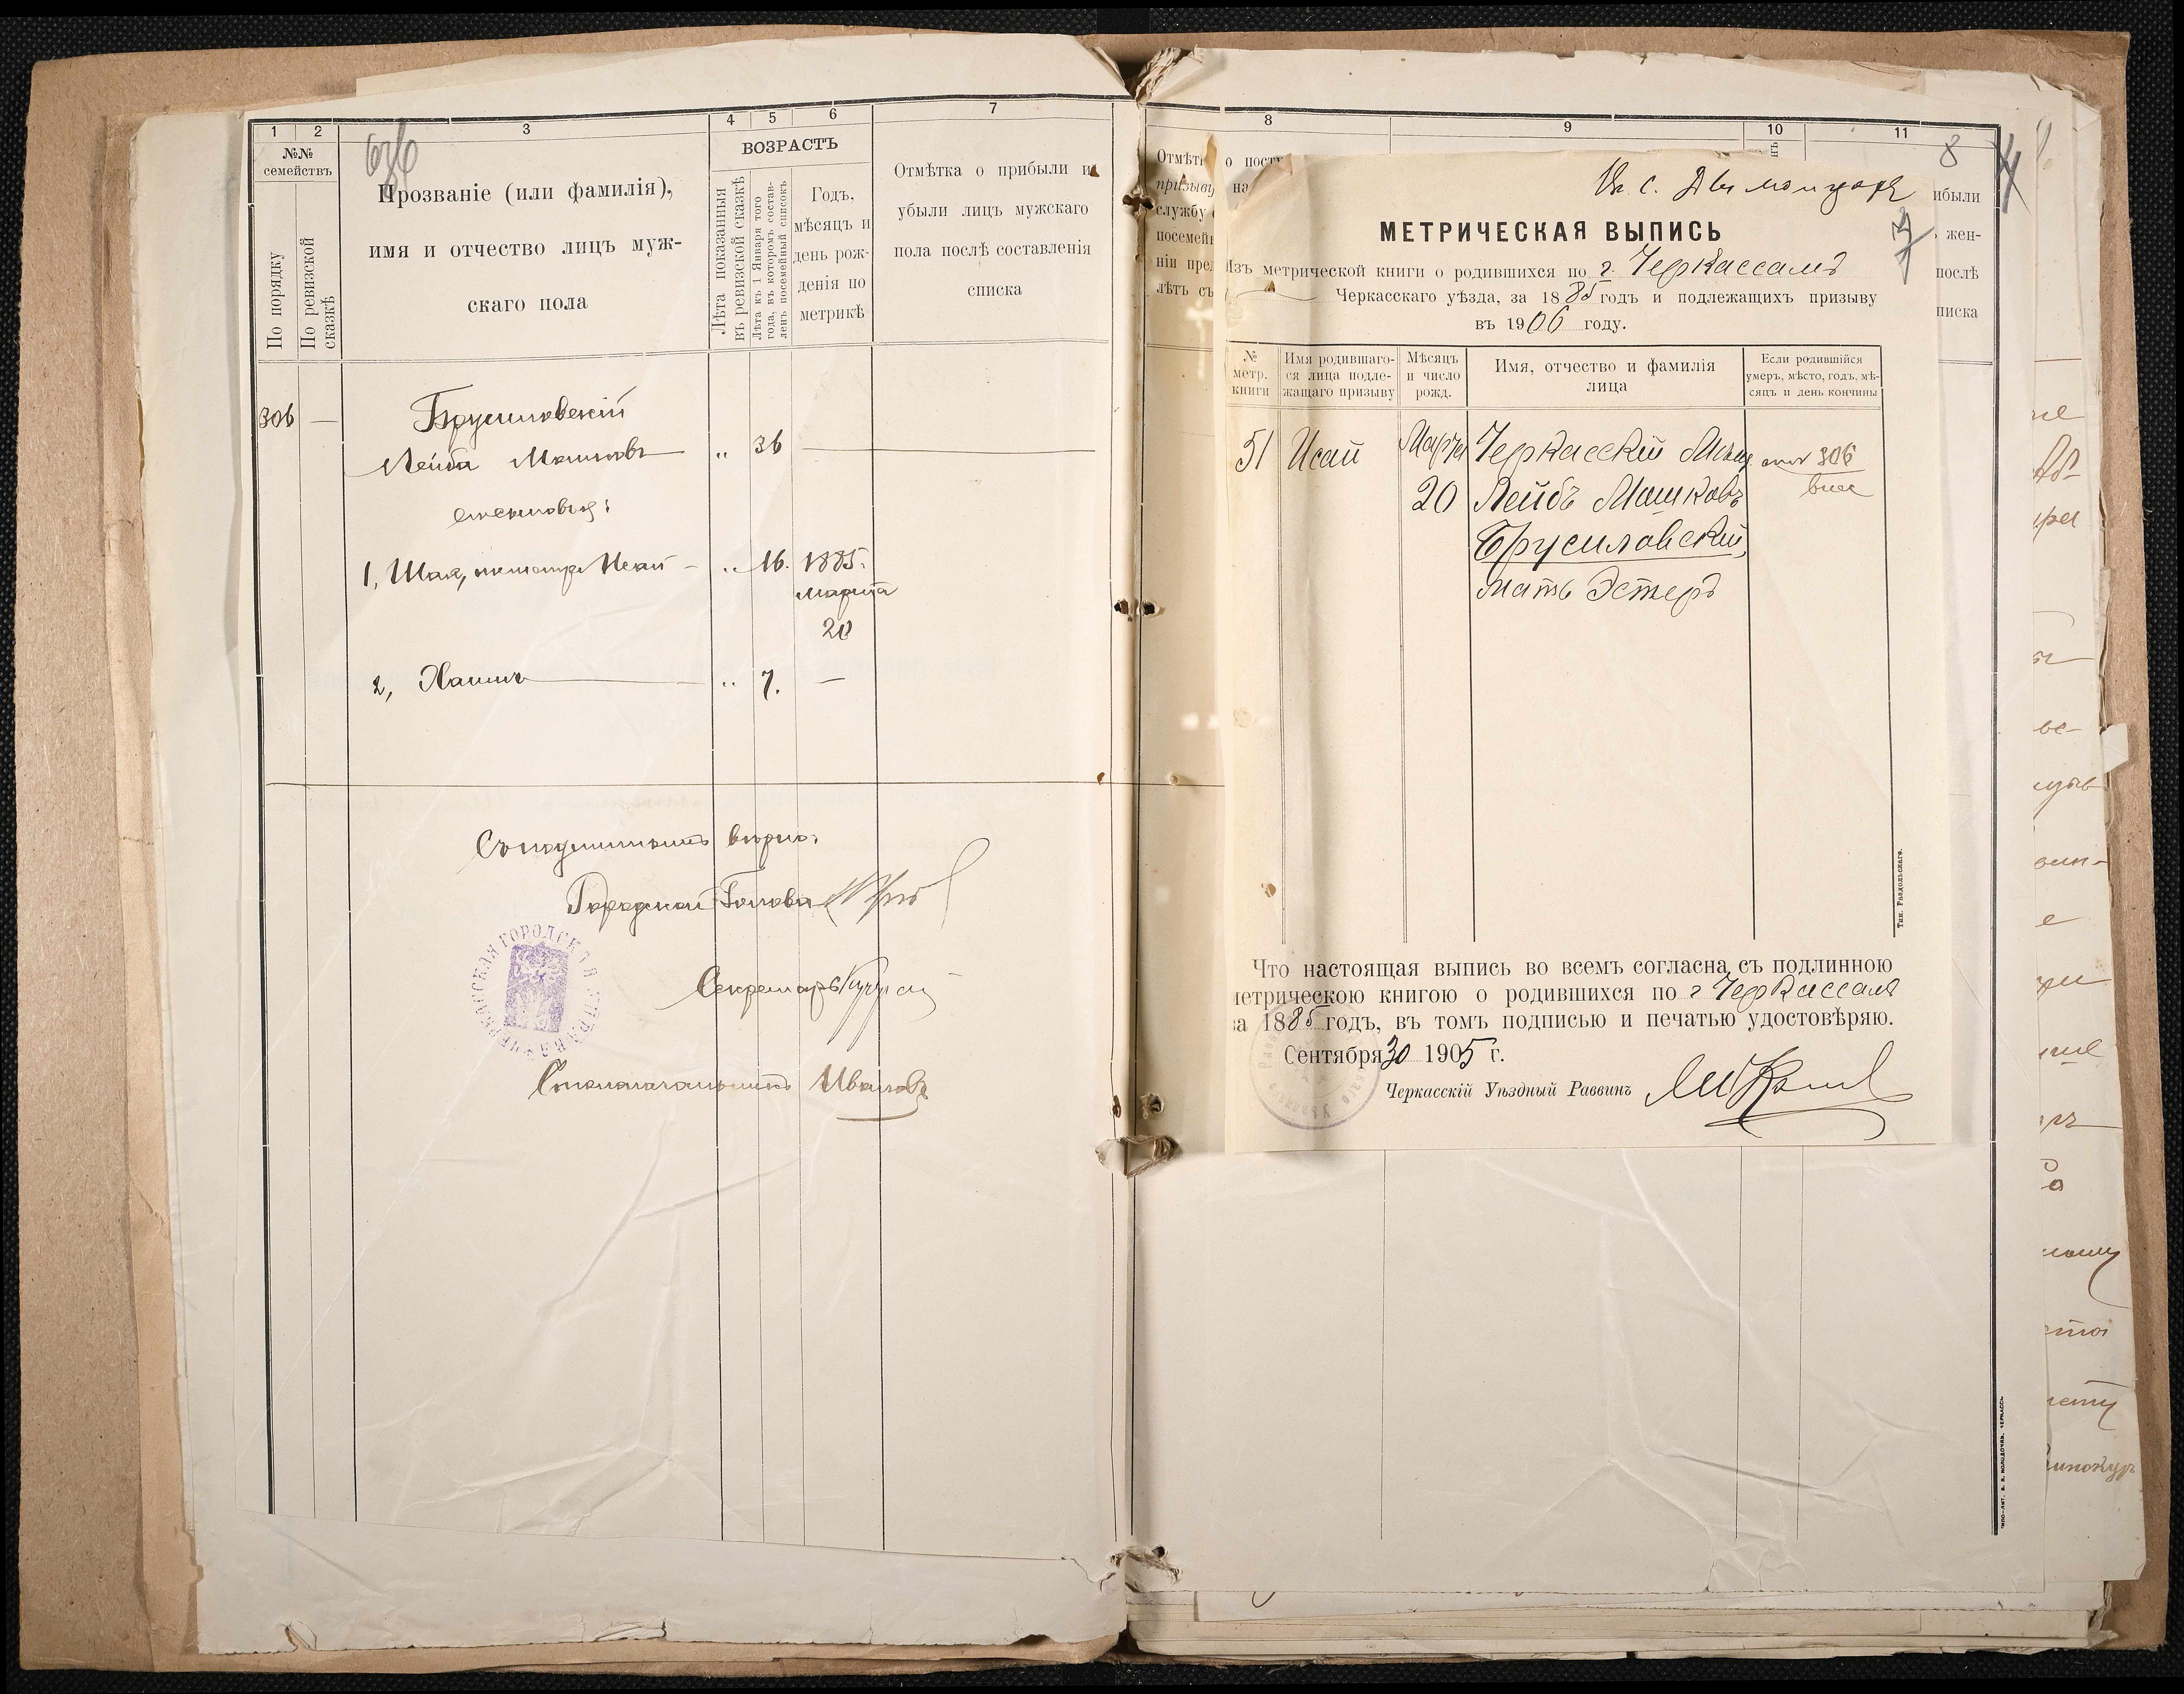 1 2 3 4 5 6 7
636
№№
семействъ
По порядку
По ревизской
сказкѣ
Прозваніе (или фамилія),
имя и отчество лицъ муж-
скаго пола
ВОЗРАСТЪ
Лѣта показанныя
въ ревизской сказкѣ
Лѣта къ 1 Января того
года, въ которомъ состав-
ленъ посемейный списокъ
Годъ,
мѣсяцъ и
день рож-
денія по
метрикѣ
Отмѣтка о прибыли и
убыли лицъ мужскаго
пола послѣ составленія
списка
306 —
Брусиловскій
Лейба Машковъ „ 36
сыновья:
1, Шая, Исай „ 16. 1885.
марта
20
2, Хаимъ „ 7. —
Съ подлиннымъ вѣрно:
Городской Голова
Секретарь
Столоначальникъ Ивановъ
ЧЕРКАССКАЯ ГОРОДСКАЯ УПРАВА
8 9 10 11
8
Отмѣт о пост
призыву на
службу
посемей
ніи пред
лѣтъ съ
ибыли
жен-
послѣ
писка
МЕТРИЧЕСКАЯ ВЫПИСЬ
Изъ метрической книги о родившихся по г. Черкассамъ
Черкасскаго уѣзда, за 1885 годъ и подлежащихъ призыву
въ 1906 году.
№
метр.
книги
Имя родившаго-
ся лица подле-
жащаго призыву
Мѣсяцъ
и число
рожд.
Имя, отчество и фамилія
лица
Если родившійся
умеръ, мѣсто, годъ, мѣ-
сяцъ и день кончины
51 Исай Марта Черкасскій Мѣщ. 306
20 Лейбъ Машковъ
Брусиловскій,
мать Эстеръ
Тип. Раздольскаго.
Что настоящая выпись во всемъ согласна съ подлинною
метрическою книгою о родившихся по г Черкассамъ
за 1885 годъ, въ томъ подписью и печатью удостовѣряю.
Сентября 30 1905 г.
Черкасскій Уѣздный Раввинъ